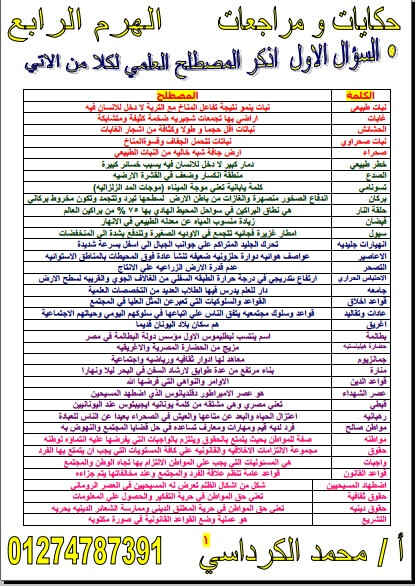 حكايات و مراجعات الهرم الرابع
السؤال الاول اذكر المصطلح العلمي لكلا من الاتي
الكلمة المصطلح
نبات طبيعي نبات ينمو نتيجة تفاعل المناخ مع التربة لا دخل للانسان فيه
غابات اراضي بها تجمعات شجيريه ضخمة كثيفة ومتشابكة
الحشائش نباتات اقل حجما و طولا وكثافة من اشجار الغابات
نبات صحراوي نباتات تتحمل الجفاف وقسوةالمناخ
صحراء ارض جافة شبه خاليه من النبات الطبيعي
خطر طبيعي دمار كبير لا دخل للانسان فيه يسبب خسائر كبيرة
الصدع منطقة انكسار وضعف في القشرة الارضيه
تسونامي كلمة يابانية تعني موجة الميناء (موجات المد الزلزاليه)
بركان اندفاع الصخور منصهرة والغازات من باطن الارض لسطحها تبرد وتتجمد وتكون مخروط بركاني
حلقة النار هي نطاق البراكين في سواحل المحيط الهادي بها ٧٥ % من براكين العالم
فيضان زيادة منسوب المياه عن معدله الطبيعي في الانهار
سيول امطار غزيرة فجائيه تتجمع في الاوديه الصغيرة وتندفع بشدة الي المنخفضات
انهيارات جليديه تحرك الجليد المتراكم علي جوانب الجبال الي اسفل بسرعة شديدة
الاعاصير عواصف هوائيه دوارة حلزونيه ضعيفه تنشأ عادة فوق المحيطات بالمناطق الاستوائيه
التصحر عدم قدرة الارض الزراعيه علي الانتاج
الاحتباس الحراري ارتفاع تدريجي في درجة حرارة الطبقه السفلي من الغلاف الجوي والقريبه لسطح الارض
جامعه دار للعلم يدرس فيها الطلاب العديد من التخصصات العلمية
قواعد اخلاق القواعد والسلوكيات التي تعبرعن المثل العليا في المجتمع
عادات وتقاليد قواعد وسلوك مجتمعيه يتفق الناس علي اتباعها في سلوكهم اليومي وحياتهم الاجتماعية
اغريق هم سكان بلاد اليونان قديما
بطالمة اسم ينتسب لبطليموس الاول مؤسس دولة البطالمة في مصر
حضارة هيلينستيه مزيج من الحضارة المصرية والاغريقيه
جمانزيوم معاهد لها ادوار ثقافيه ورياضيه واجتماعية
منارة بناء مرتفع من عدة طوابق لارشاد السفن في البحر ليلا ونهارا
قواعد الدين الاوامر والنواهي التي فرضها الله
عصر الشهداء هو عصر الامبراطور دقلديانوس الذي اضطهد المسيحين
قبطي تعني مصري وهي مشتقه من كلمة يونانيه ايجيبتوس عند اليونانيين
رهبانيه اعتزال الحياه والبعد عن متاعها والعيش في الصحراء بعيدا عن الناس للعبادة
مواطن صالح فرد لديه قيم ومهارات ومعارف تساعده في حل قضايا المجتمع والنهوض به
مواطنه صفة للمواطن بحيث يتمتع بالحقوق ويلتزم بالواجبات التي يفرضها عليه انتماؤه لوطنه
حقوق مجموعة الالتزامات الاخلاقيه والقانونيه علي كافة المستويات التي يجب ان يتمتع بها الفرد
واجبات هي المسئوليات التي يجب علي المواطن الالتزام بها تجاه الوطن والمجتمع
قواعد القانون قواعد عامة تنظم علاقة الفرد والمجتمع وعند مخالفاتها يتم جزاءه
اضطهاد المسيحيين شكل من اشكال الظلم تعرض له المسيحيين في العصر الروماني
حقوق ثقافية تعني حق المواطن في حرية التفكير والحصول علي المعلومات
حقوق دينيه تعني حق المواطن في حرية المعتنق الديني وممارسة الشعائر الدينيه بحريه
التشريع هو عملية وضع القواعد القانونية في صورة مكتوبه
١
أ / محمد الكرداسي 01274787391